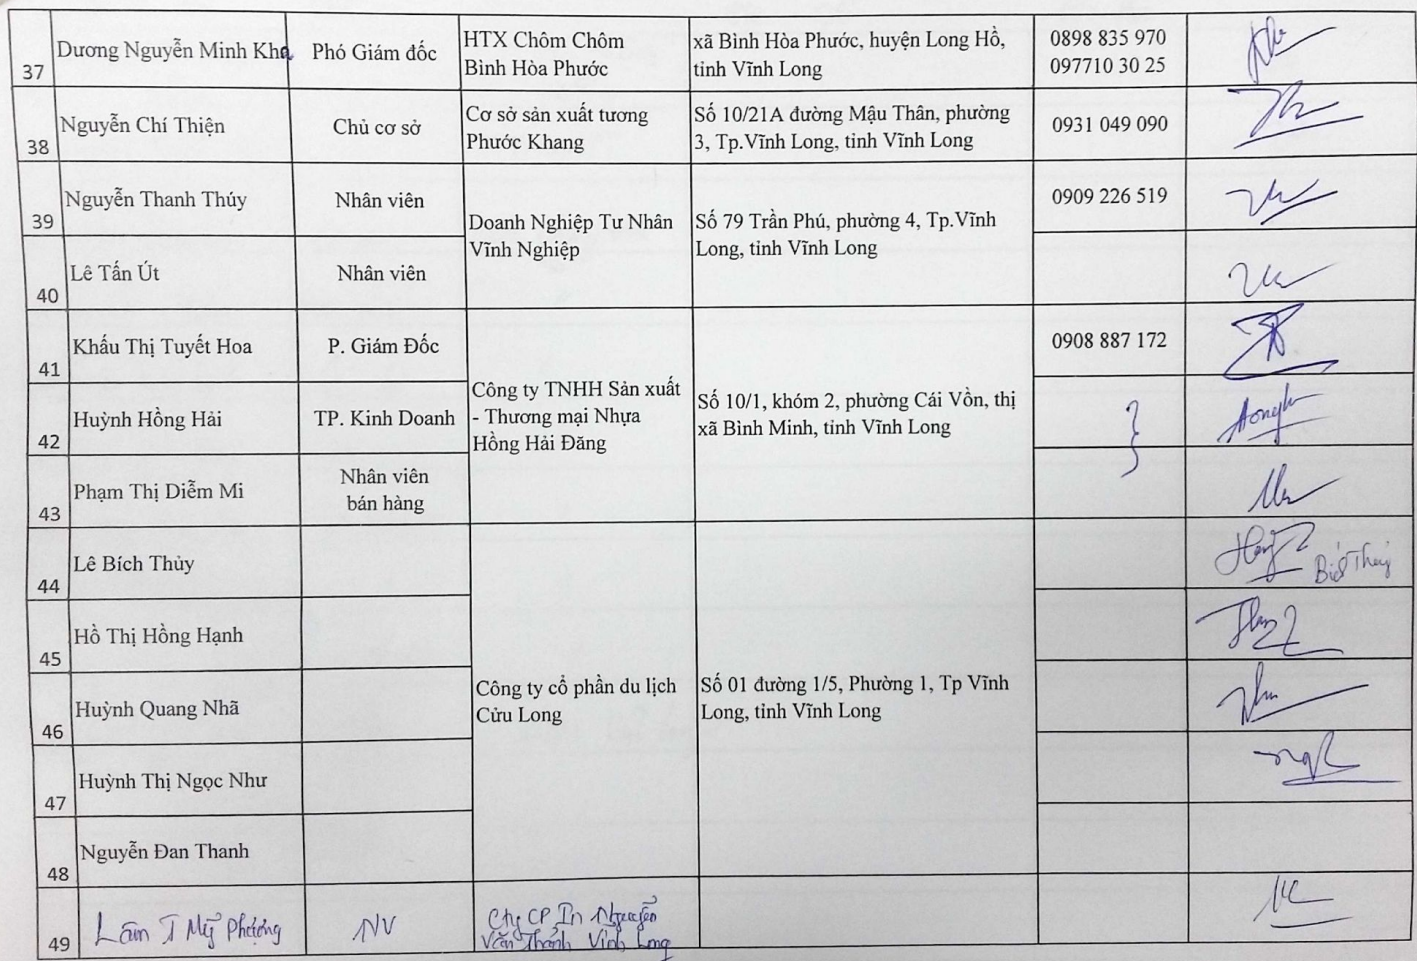 37
Dương Nguyễn Minh Kha
Phó Giám đốc
HTX Chôm Chôm
Bình Hòa Phước
xã Bình Hòa Phước, huyện Long Hồ,
tỉnh Vĩnh Long
0898 835 970
097710 30 25
38
Nguyễn Chí Thiện
Chủ cơ sở
Cơ sở sản xuất tương
Phước Khang
Số 10/21A đường Mậu Thân, phường
3, Tp.Vĩnh Long, tỉnh Vĩnh Long
0931 049 090
39
Nguyễn Thanh Thúy
Nhân viên
Doanh Nghiệp Tư Nhân
Vĩnh Nghiệp
Số 79 Trần Phú, phường 4, Tp.Vĩnh
Long, tỉnh Vĩnh Long
0909 226 519
40
Lê Tấn Út
Nhân viên
41
Khấu Thị Tuyết Hoa
P. Giám Đốc
Công ty TNHH Sản xuất
- Thương mại Nhựa
Hồng Hải Đăng
Số 10/1, khóm 2, phường Cái Vồn, thị
xã Bình Minh, tỉnh Vĩnh Long
0908 887 172
42
Huỳnh Hồng Hải
TP. Kinh Doanh
43
Phạm Thị Diễm Mi
Nhân viên
bán hàng
44
Lê Bích Thủy
Công ty cổ phần du lịch
Cửu Long
Số 01 đường 1/5, Phường 1, Tp Vĩnh
Long, tỉnh Vĩnh Long
45
Hồ Thị Hồng Hạnh
46
Huỳnh Quang Nhã
47
Huỳnh Thị Ngọc Như
48
Nguyễn Đan Thanh
49
Lâm T Mỹ Phượng
NV
Cty CP In Nguyễn
Văn Thảnh Vĩnh Long